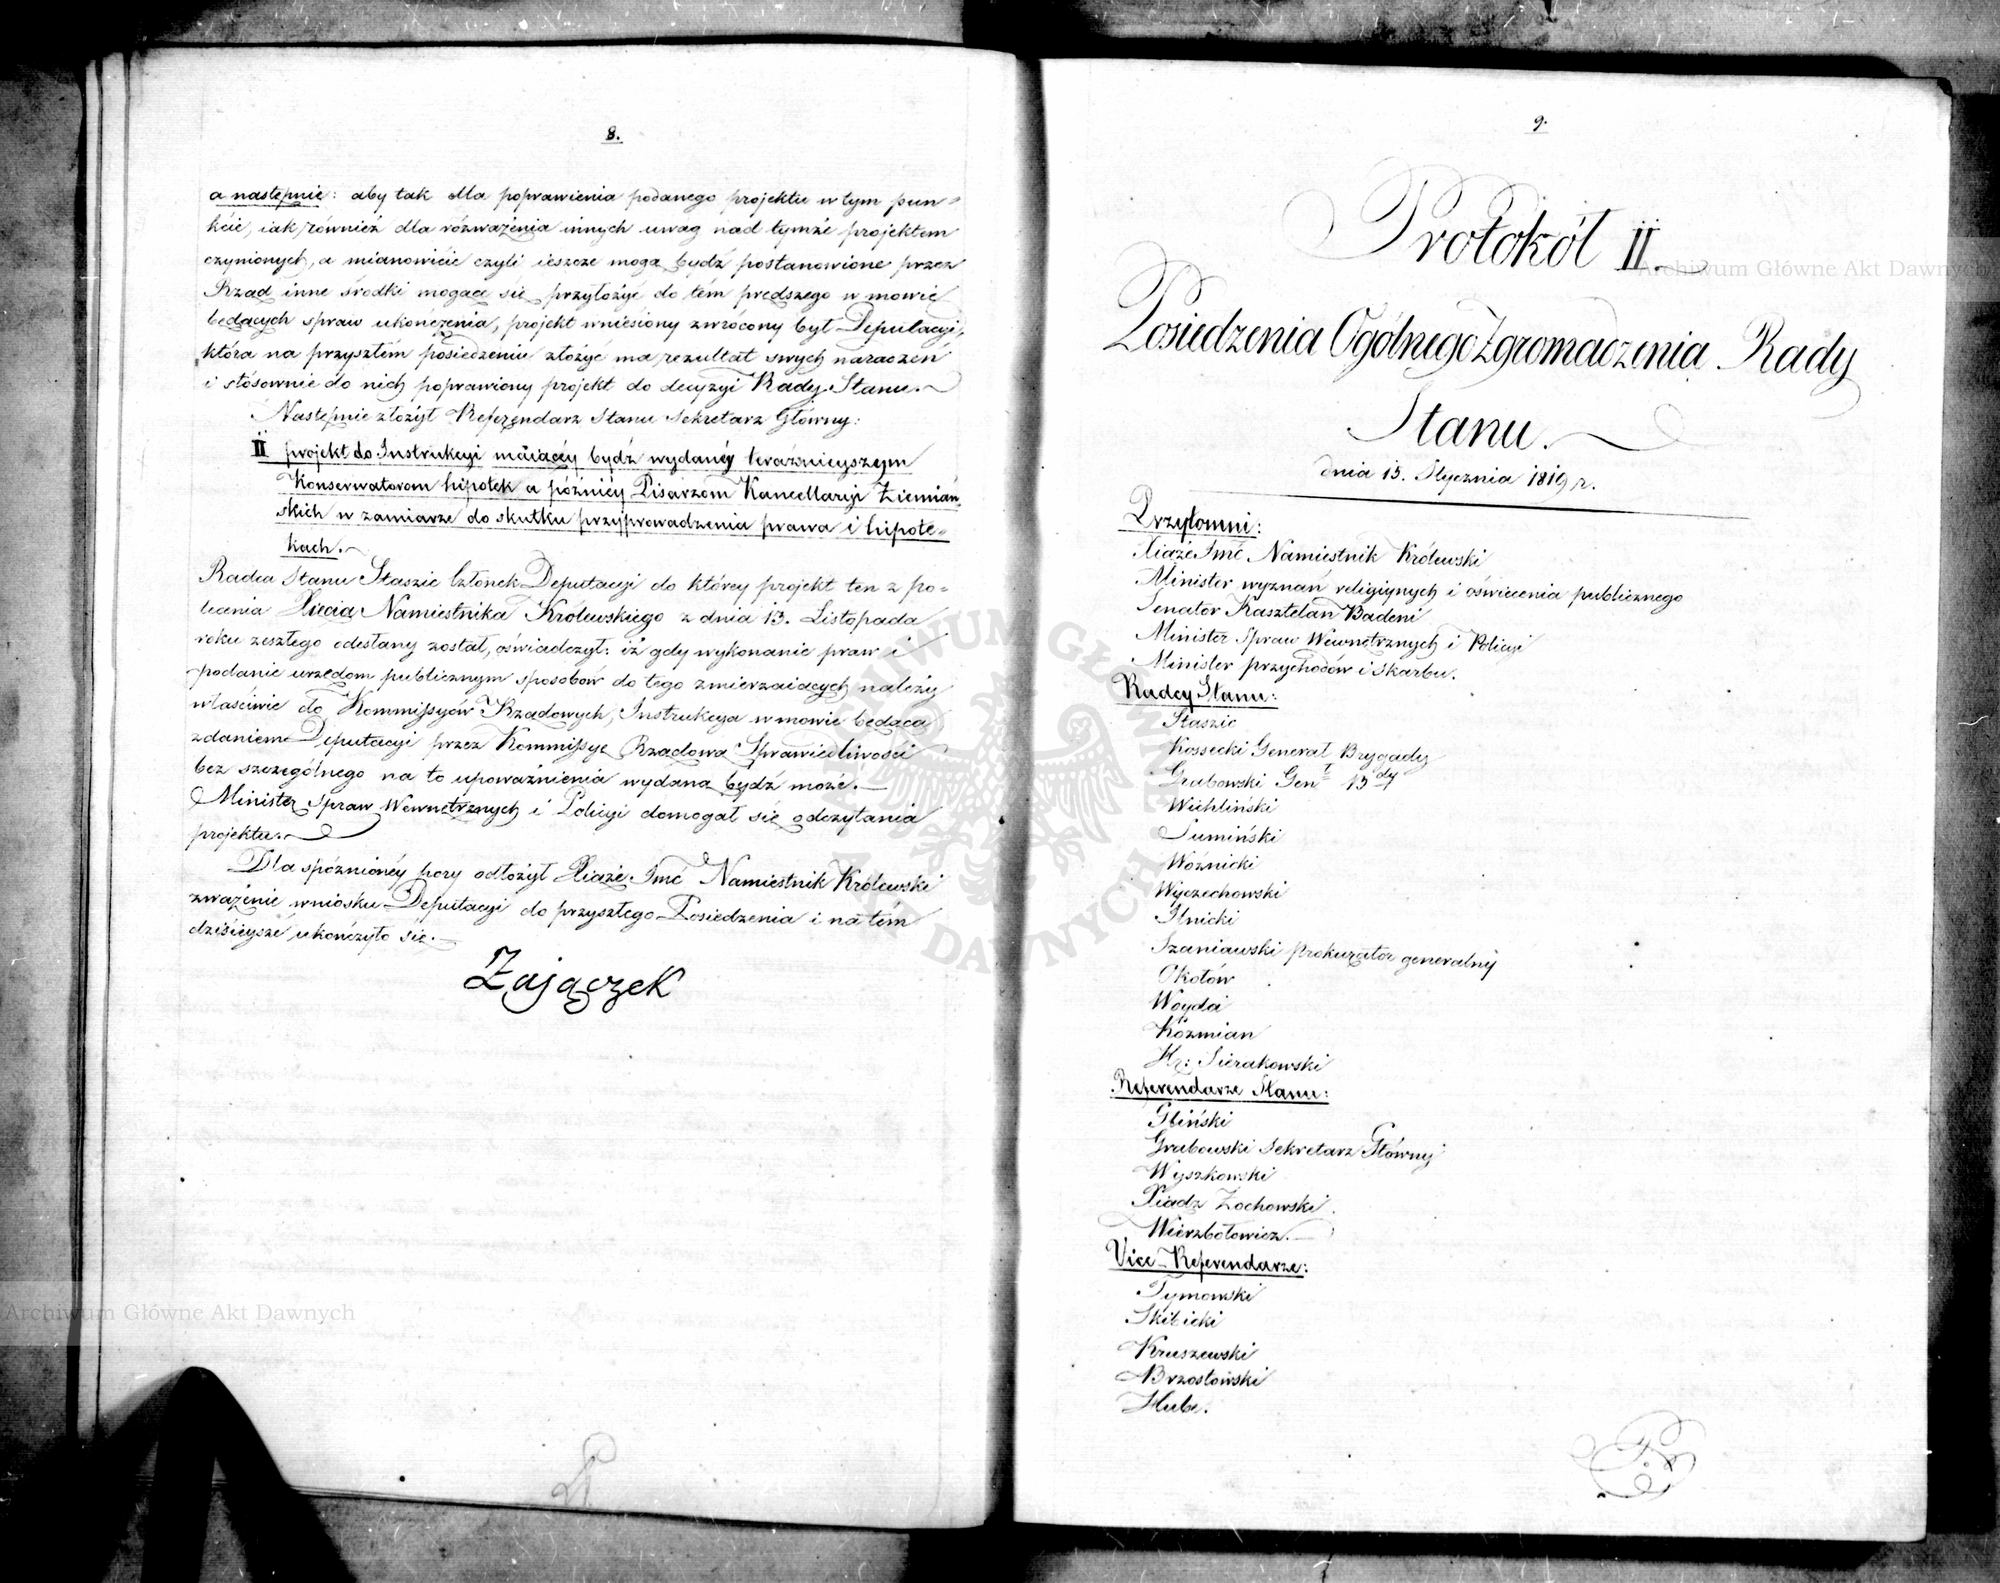 8.
a następnie: aby tak dla poprawienia podanego projektu w tym pun=
kcie, iak również dla rozważenia innych uwag nad tymże projektem
czynionych, a mianowicie czyli ieszcze mogą bydź postanowione przez
Rząd inne środki mogące się przyłożyć do tém prędszego w mowie
będących spraw ukończenia, projekt wniesiony zwrócony był Deputacyi,
która na przyszłém posiedzeniu złożyć ma rezultat swych naradzeń
i stósownie do nich poprawiony projekt do decyzyi Rady Stanu.
Następnie złożył Referendarz Stanu Sekretarz Główny:
II projekt do Instrukcyi maiącéy bydź wydanéy teraźnieyszym
Konserwatorom hipotek a późniéy Pisarzom Kancellaryi Ziemiań=
skich w zamiarze do skutku przyprowadzenia prawa i hipote=
kach.
Radca Stanu Staszic Członek Deputacyi do któréy projekt ten z po=
lecenia Xięcia Namiestnika Królewskiego z dnia 13. Listopada
roku zeszłego odesłany został, oświadczył: iż gdy wykonanie praw i
podanie urzędom publicznym sposobów do tego zmierzaiących należy
właściwie do Kommissyów Rządowych, Instrukcya w mowie będąca
zdaniem Deputacyi przez Kommissyę Rządową Sprawiedliwości
bez szczególnego na to upoważnienia wydaną bydź może.
Minister Spraw Wewnętrznych i Policyi domogał się odczytania
projektu.
Dla spóznionéy pory odłożył Xiąże Jmć Namiestnik Królewski
zważenie wniosku Deputacyi do przyszłego Posiedzenia i na tém
dzisieysze ukończyło się.
Zajączek
9.
Protokół II.
Posiedzenia Ogólnego Zgromadzenia Rady
Stanu.
dnia 15. Stycznia 1819 r.
Przytomni:
Xiąże Jmć Namiestnik Królewski
Minister wyznań religiynych i oświecenia publicznego
Senator Kasztelan Badeni
Minister Spraw Wewnętrznych i Policyi
Minister przychodów i Skarbu.
Radcy Stanu:
Staszic
Kossecki Generał Brygady
Grabowski Gen<sup>ł</sup> B<sup>dy</sup>
Wichliński
Sumiński
Woźnicki
Wyczechowski
Ilnicki
Szaniawski prokurator generalny
Okołów
Woyda
Koźmian
Hr: Sierakowski
Referendarze Stanu:
Gliński
Grabowski Sekretarz Główny
Wyszkowski
Xiądz Żochowski
Wierzbołowicz.
Vice-Referendarze:
Tymowski
Skibicki
Kruszewski
Brzostowski
Hube.
Archiwum Główne Akt Dawnych
Archiwum Główne Akt Dawnych
ARCHIWUM GŁÓWNE AKT DAWNYCH